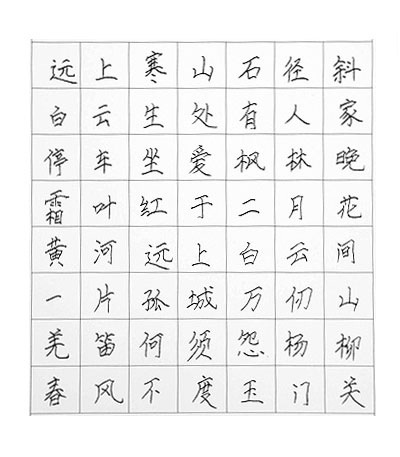 远上寒山石径斜
白云生处有人家
停车坐爱枫林晚
霜叶红于二月花
黄河远上白云间
一片孤城万仞山
羌笛何须怨杨柳
春风不度玉门关